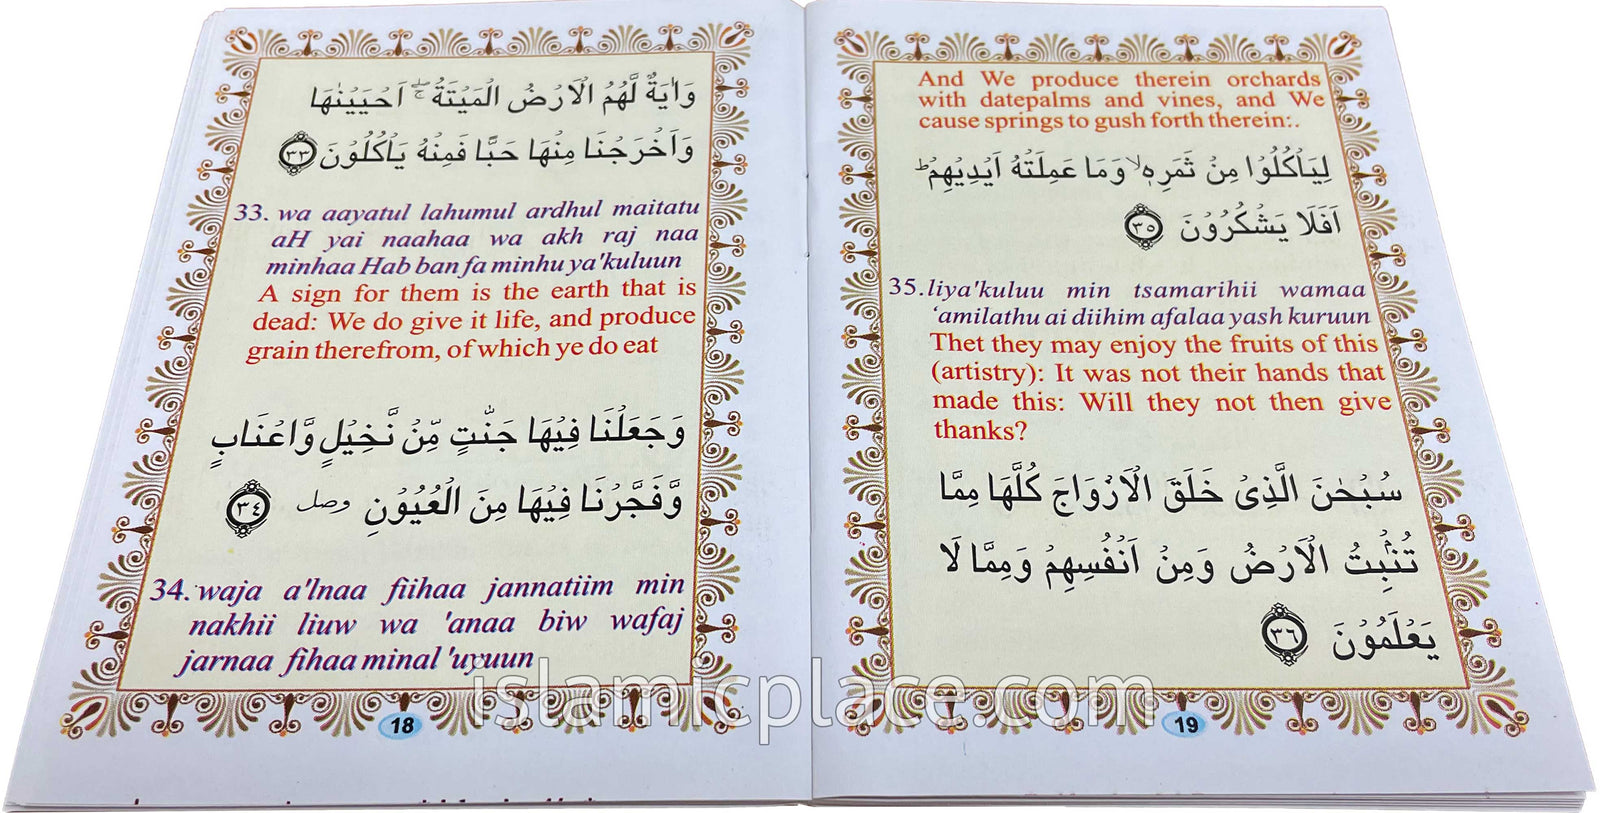 وَاٰيَةٌ لَّهُمُ الْاَرْضُ الْمَيْتَةُ ۖۚ اَحْيَيْنٰهَا
وَاَخْرَجْنَا مِنْهَا حَبًّا فَمِنْهُ يَاْكُلُوْنَ ٣٣
33. wa aayatul lahumul ardhul maitatu
aH yai naahaa wa akh raj naa
minhaa Hab ban fa minhu ya'kuluun
A sign for them is the earth that is
dead: We do give it life, and produce
grain therefrom, of which ye do eat
وَجَعَلْنَا فِيْهَا جَنّٰتٍ مِّنْ نَّخِيْلٍ وَّاَعْنَابٍ
وَّفَجَّرْنَا فِيْهَا مِنَ الْعُيُوْنِ وصل ٣٤
34. waja a'lnaa fiihaa jannatiim min
nakhii liuw wa 'anaa biw wafaj
jarnaa fihaa minal 'uyuun
18
And We produce therein orchards
with datepalms and vines, and We
cause springs to gush forth therein:.
لِيَاْكُلُوْا مِنْ ثَمَرِهٖ ۙ وَمَا عَمِلَتْهُ اَيْدِيْهِمْ ۗ
اَفَلَا يَشْكُرُوْنَ ٣٥
35. liya'kuluu min tsamarihii wamaa
'amilathu ai diihim afalaa yash kuruun
Thet they may enjoy the fruits of this
(artistry): It was not their hands that
made this: Will they not then give
thanks?
سُبْحٰنَ الَّذِيْ خَلَقَ الْاَزْوَاجَ كُلَّهَا مِمَّا
تُنْۢبِتُ الْاَرْضُ وَمِنْ اَنْفُسِهِمْ وَمِمَّا لَا
يَعْلَمُوْنَ ٣٦
19
islamicplace.com